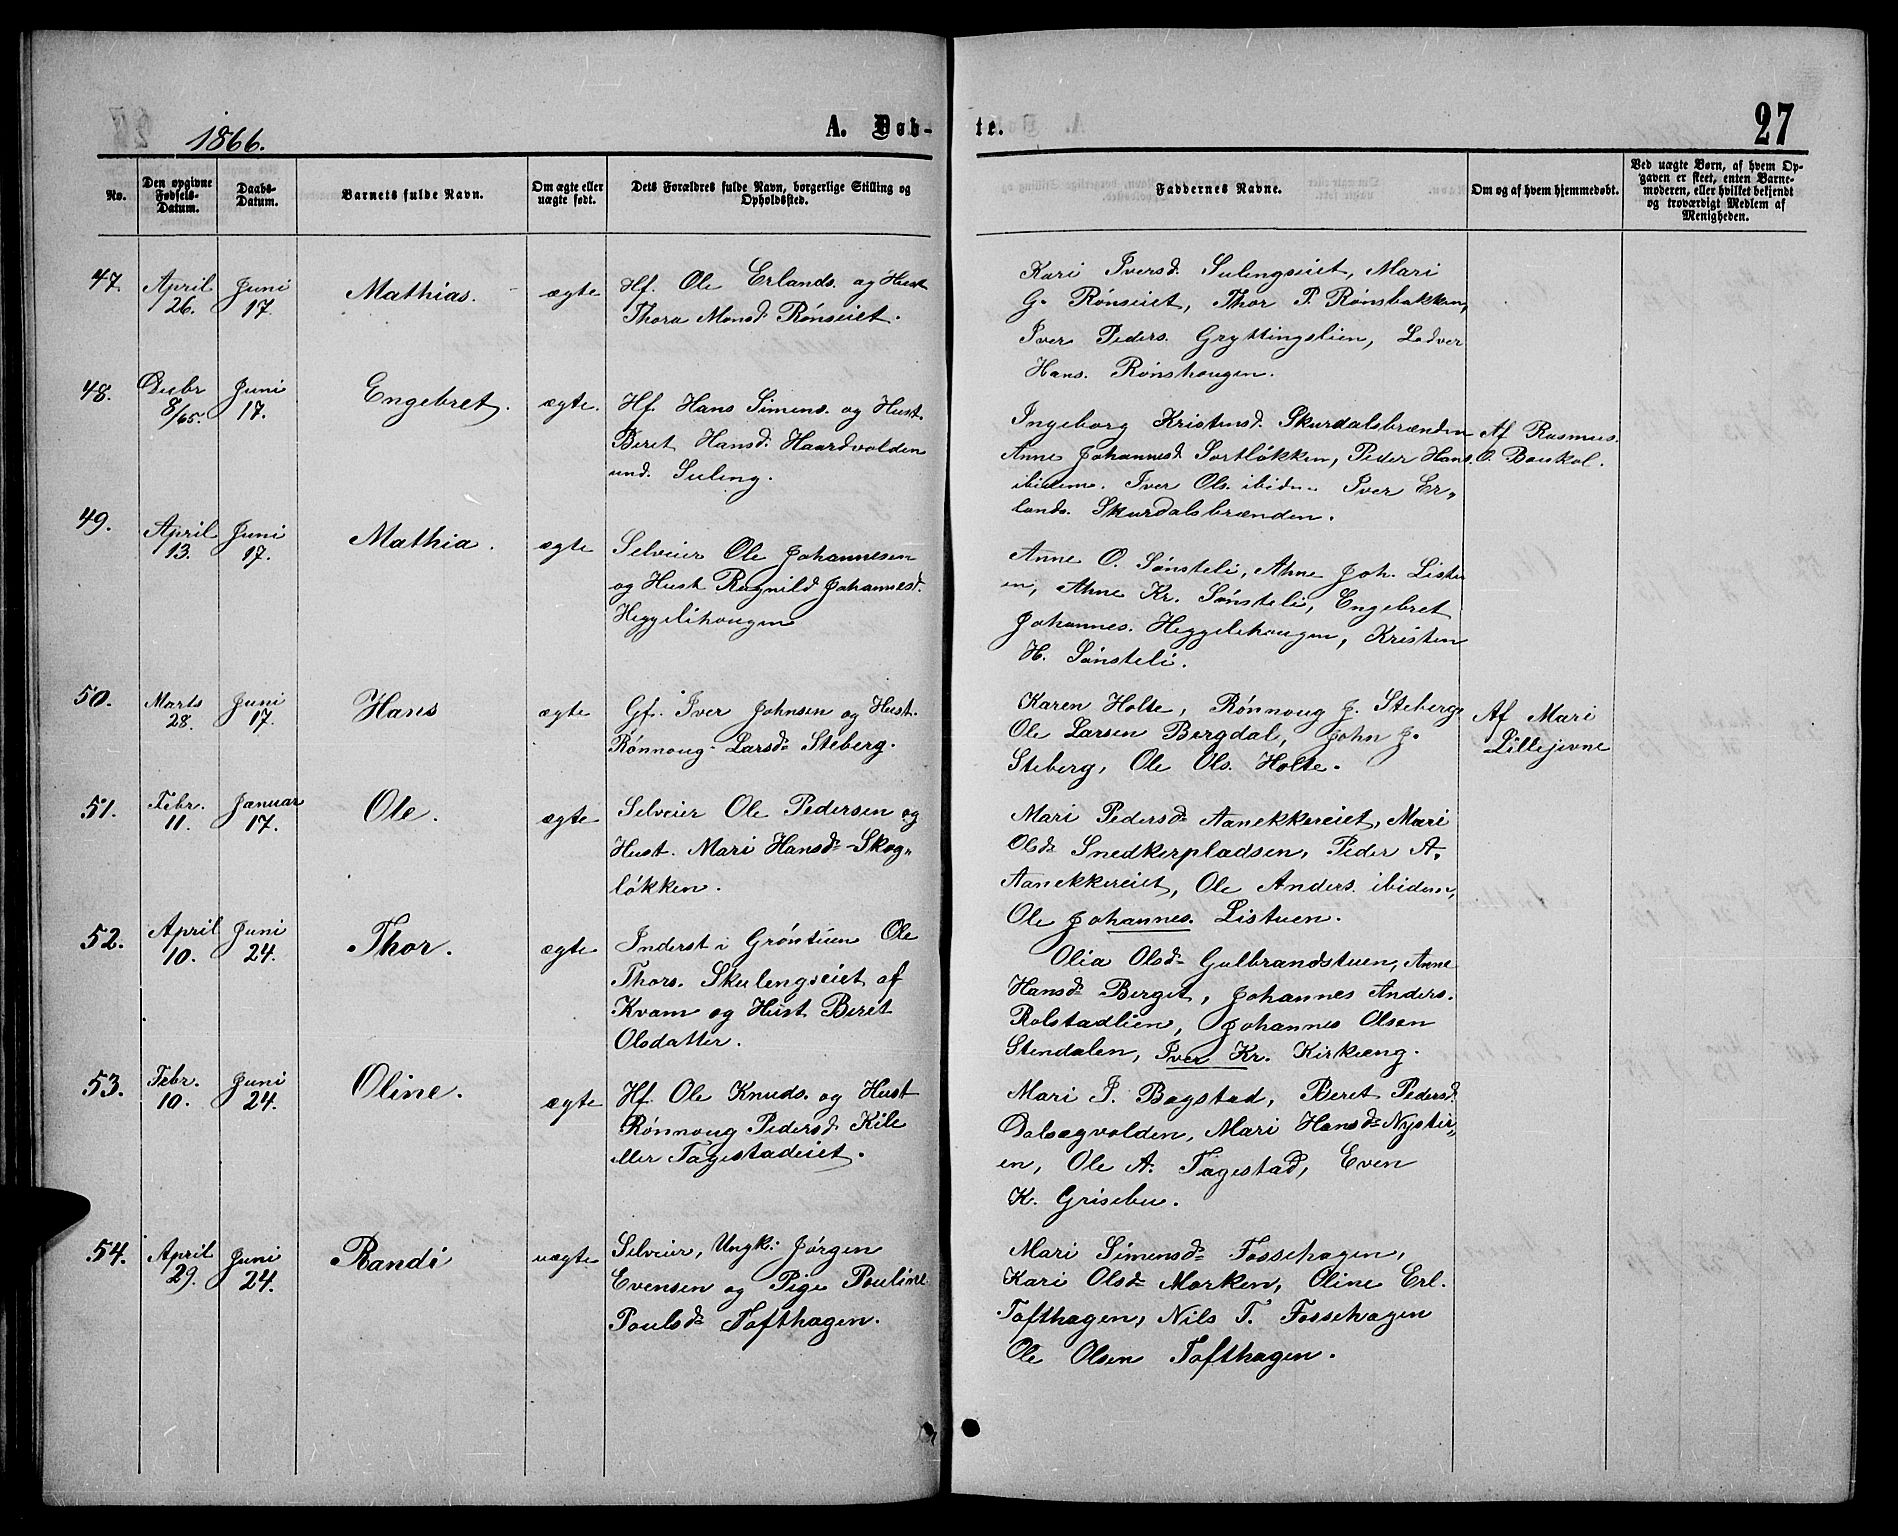 1866.
A. Døb-
te.
27
No.
Den opgivne
Fødsels-
Datum.
Daabs-
Datum.
Barnets fulde Navn.
Om ægte eller
uægte født.
Dets Forældres fulde Navn, borgerlige Stilling og
Opholdssted.
Faddernes Navne.
Om og af hvem hjemmedøbt.
Ved uægte Børn, af hvem Op-
gaven er skeet, enten Barne-
moderen, eller hvilket bekjendt
og troværdigt Medlem af
Menigheden.
47.
April
26.
Juni
17.
Mathias.
ægte
Hf. Ole Erlands. og Hust.
Thora Monsd. Rønseiet.
Kari Iversd. Sulingseiet, Mari
G. Rønseiet, Thor P. Rønsbakken,
Iver Peders. Gryttingslien, Ledver
Hans. Rønshougen.
48.
Decbr
8/65.
Juni
17.
Engebret.
ægte.
Hf. Hans Simens. og Hust.
Beret Hansd. Haardvolden
und. Suling.
Ingeborg Kristensd. Skurdalsbrænden
Anne Johannesd. Sortløkken, Peder Hans.
ibidem. Iver Ols. ibidm. Iver Er-
lands. Skurdalsbrænden.
Af Rasmus
O. Boukol.
49.
April
13.
Juni
17.
Mathia.
ægte
Selveier Ole Johannesen
og Hust Ragnild Johannesd.
Heggelihougen
Anne O. Sønsteli, Anne Joh. Listu
en, Anne Kr. Sønsteli, Engebret
Johannes. Heggelihougen, Kristen
H. Sønsteli.
50.
Marts
28.
Juni
17.
Hans
ægte
Gf. Iver Johnsen og Hust.
Rønnoug Larsd. Steberg.
Karen Holte, Rønnoug J. Steberg,
Ole Larsen Bergdal, John J.
Steberg, Ole Ols. Holte.
Af Mari
Lillejevne
51.
Febr.
11.
Januar
17.
Ole.
ægte
Selveier Ole Pedersen og
Hust. Mari Hansd. Skog-
løkken.
Mari Pedersd. Aanekkereiet, Mari
Olsd. Snedkerpladsen, Peder A.
Aanekkereiet, Ole Anders. ibidem,
Ole Johannes. Listuen.
52.
April
10.
Juni
24.
Thor.
ægte
Inderst i Grøntuen Ole
Thors. Skulengseiet af
Kvam og Hust Beret
Olsdatter.
Olia Olsd. Gulbrandstuen, Anne
Hansd. Berget, Johannes Anders.
Rolstadlien, Johannes Olsen
Stendalen, Iver Kr. Kirkeeng.
53.
Febr.
10.
Juni
24.
Oline.
ægte
Hf. Ole Knuds. og Hust
Rønnoug Pedersd. Kile
eller Tagestadeiet.
Mari P. Bagstad, Beret Pedersd.
Dalsegvolden, Mari Hansd. Nystu-
en, Ole A. Tagestad, Even
K. Grisebu.
54.
April
29.
Juni
24.
Randi
uægte
Selveier, Ungk: Jørgen
Evensen og Pige Pouline
Poulsd. Tofthagen.
Mari Simensd. Fossehagen,
Kari Olsd. Morken, Oline Erl.
Tofthagen, Nils T. Fossehagen
Ole Olsen Tofthagen.